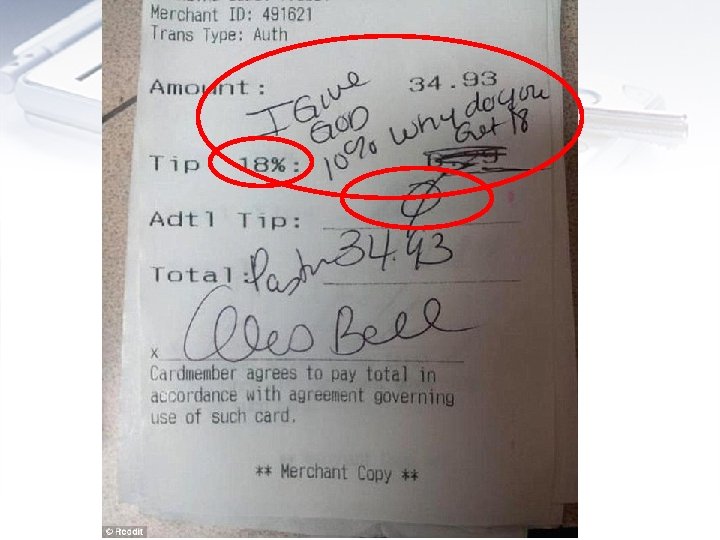 Merchant ID: 491621
Trans Type: Auth
Amount: 34.93
I Give
GOD
10% Why do you
Get 18
Tip 18%:
Adtl Tip: Ø
Total: Pastor 34.93
x
Bell
Cardmember agrees to pay total in
accordance with agreement governing
use of such card.
** Merchant Copy **
© Reddit